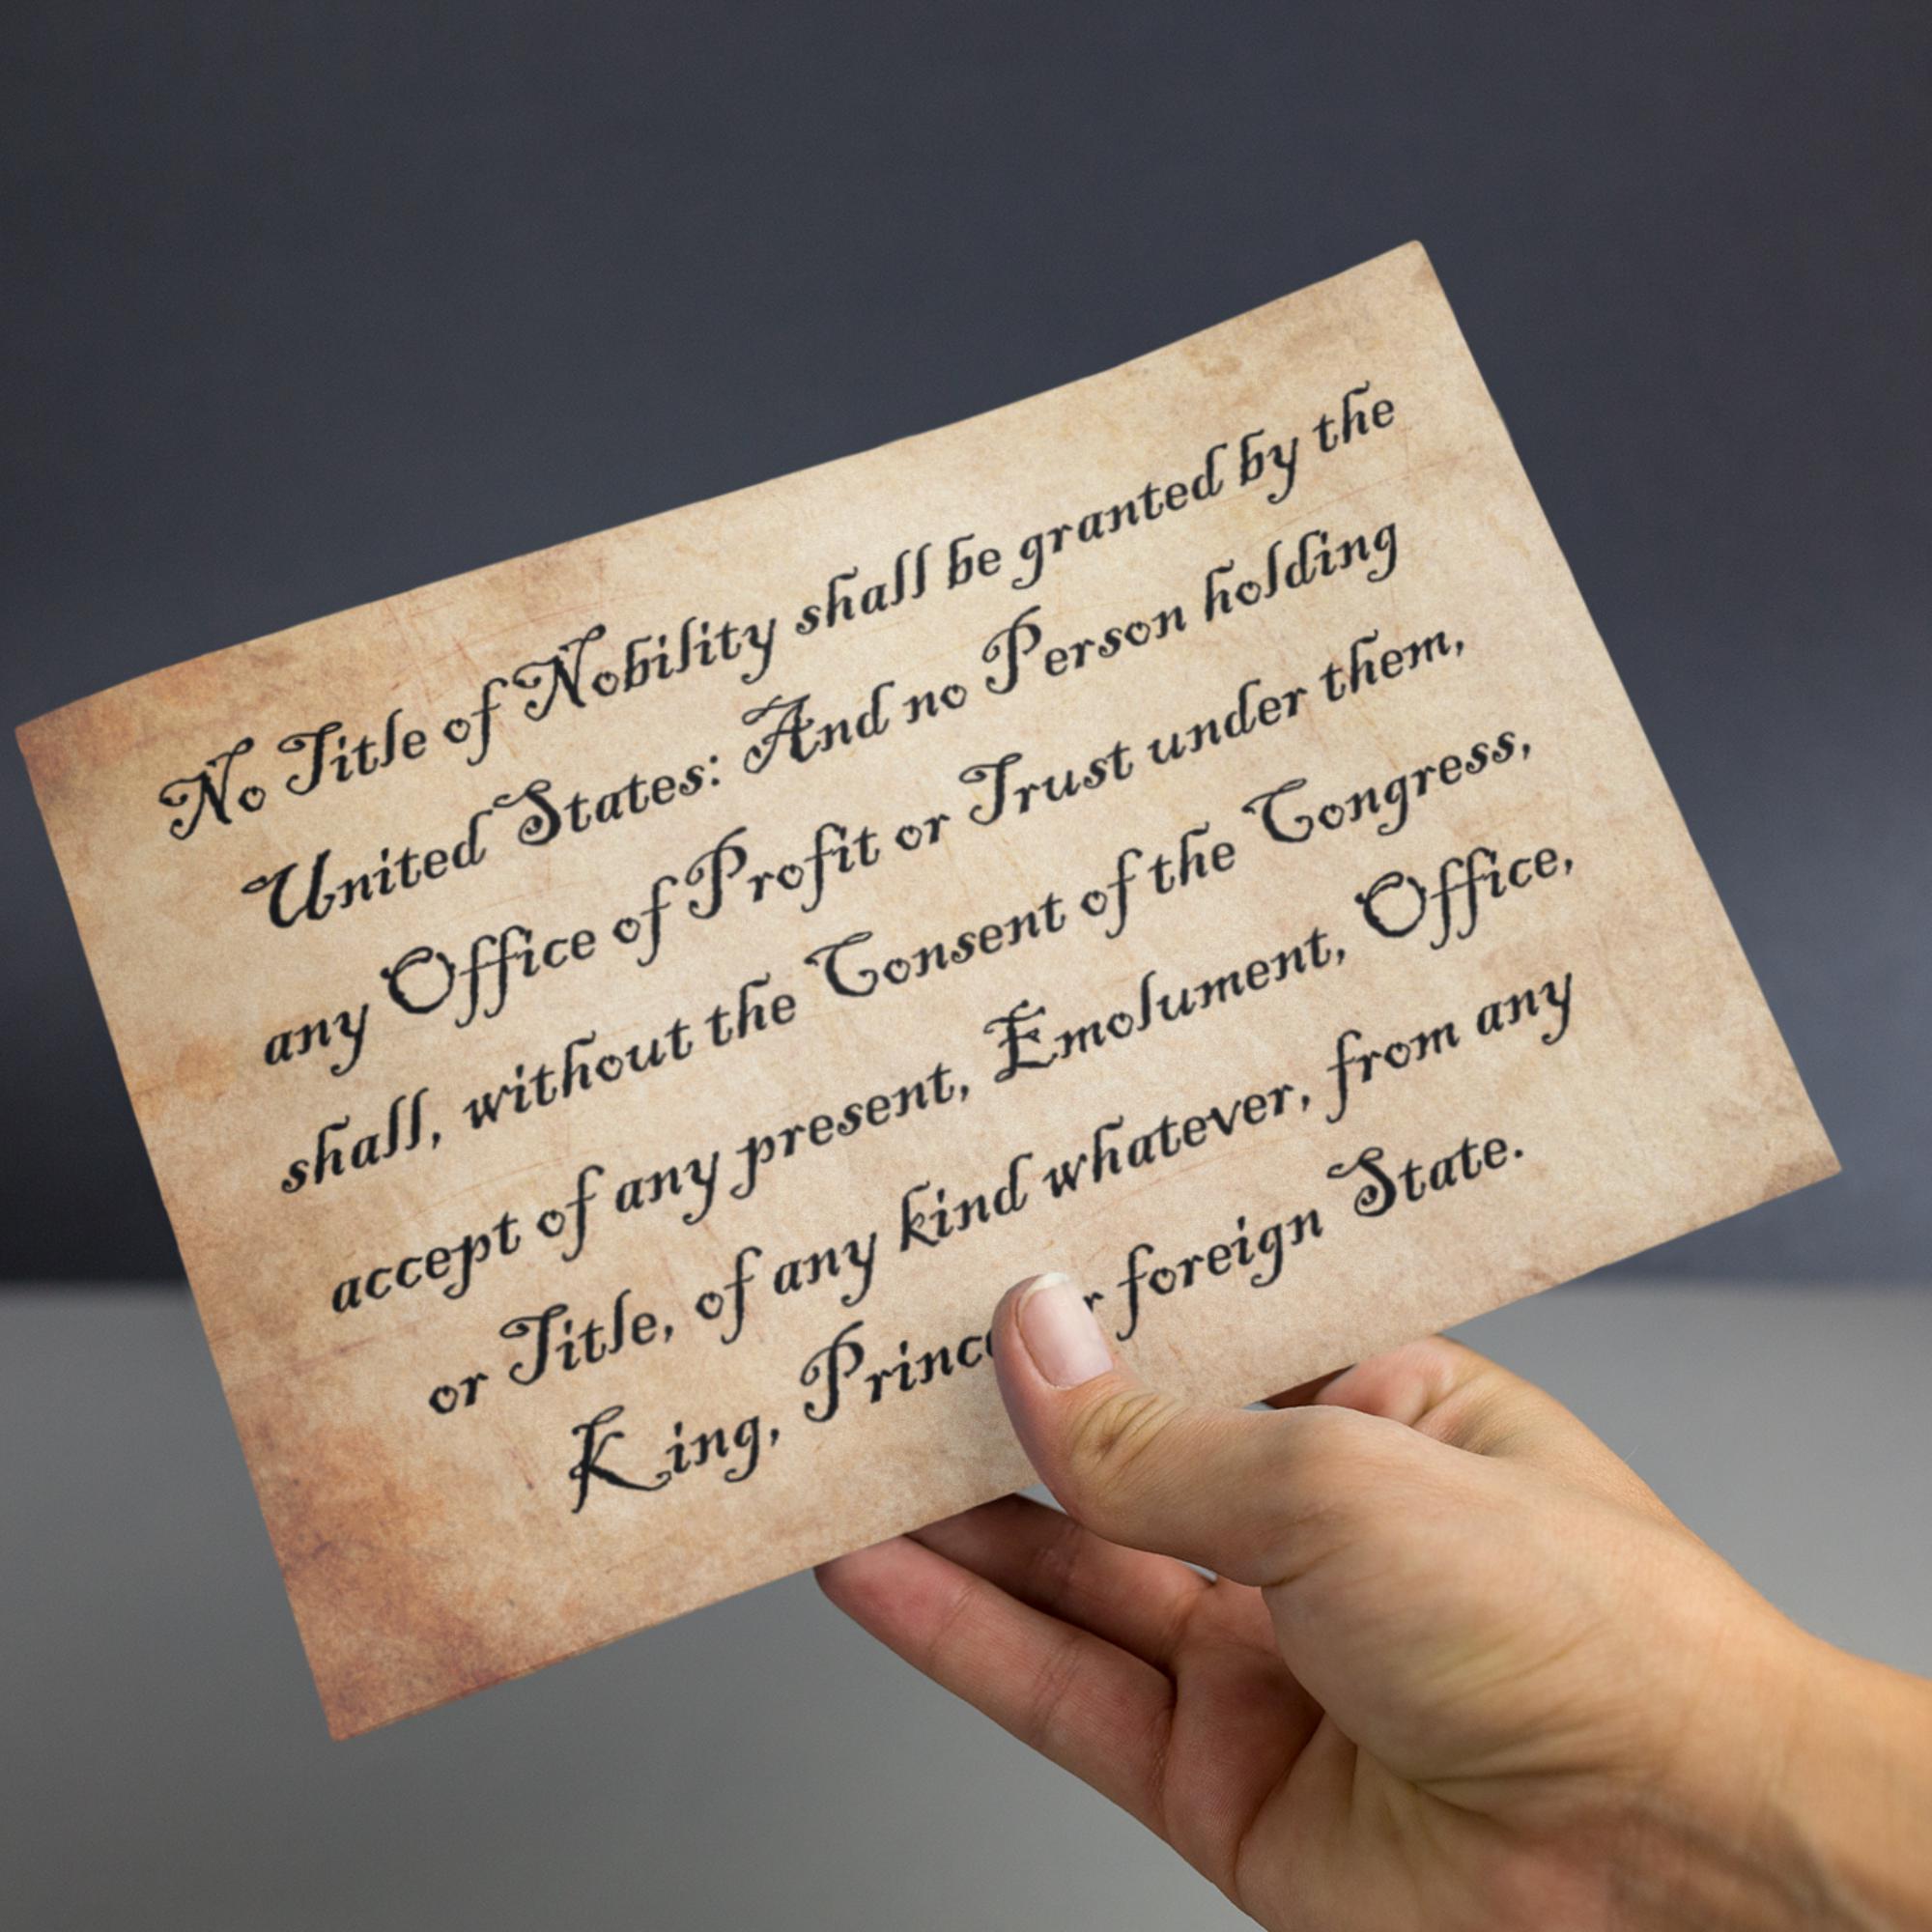 No Title of Nobility shall be granted by the
United States: And no Person holding
any Office of Profit or Trust under them,
shall, without the Consent of the Congress,
accept of any present, Emolument, Office,
or Title, of any kind whatever, from any
King, foreign State.